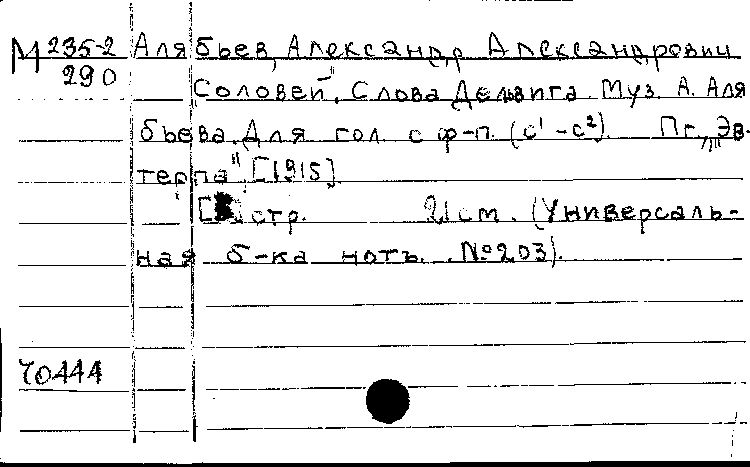 М 235-2 Алябьев, Александр Александрович
290 Соловей. Слова Дельвига. Муз. А. Аля
бьева. Для гол. с ф-п. (c¹-c²). Пг., „Эв-
терпа" [1915]
стр. 21 см. (Универсаль-
ная б-ка нотъ. №203).
70444